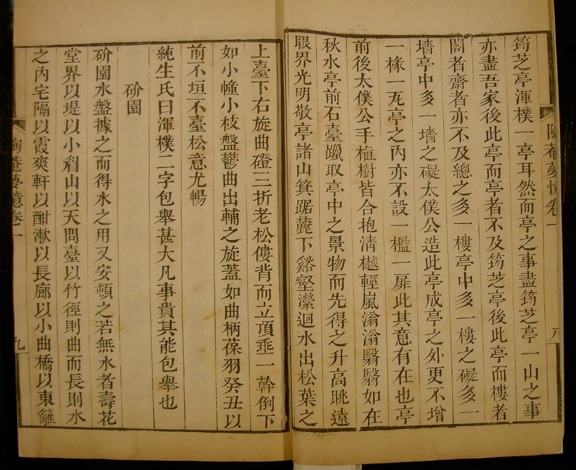 筠芝亭渾樸一亭耳然而亭之事盡筠芝亭一山之事
亦盡吾家後此亭而亭者不及筠芝亭後此亭而樓者
閣者齋者亦不及總之多一樓亭中多一樓之礙多一
墻亭中多一墻之礙太僕公造此亭成亭之外更不增
一椽一瓦亭之內亦不設一檻一扉此其意有在也亭
前後太僕公手植樹皆合抱清樾輕嵐滃滃翳翳如在
秋水亭前石臺躐取亭中之景物而先得之升高眺遠
眼界光明敬亭諸山箕踞麓下谿壑瀠迴水出松葉之
上臺下右旋曲磴三折老松僂背而立頂垂一幹倒下
如小幢小枝盤鬱曲出輔之旋蓋如曲柄葆羽癸丑以
前不垣不臺松意尤暢
純生氏曰渾樸二字包舉甚大凡事貴其能包舉也
砎園
砎園水盤據之而得水之用又安頓之若無水者壽花
堂界以堤以小眉山以天問臺以竹徑則曲而長則水
之內宅隔以霞爽軒以酣漱以長廊以小曲橋以東籬
陶菴夢憶卷一
九
陶菴夢憶卷一
八